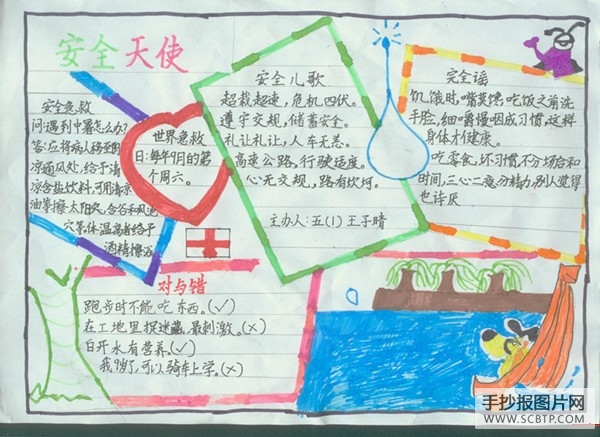 安全天使
安全急救
问:遇到中暑怎么办?
答:应将病人移至阴
凉通风处,给予清
凉含盐饮料,可用清凉
油擦太阳穴,合谷和风池
穴等,体温高者给予
酒精擦浴
世界急救
日:每年9月的第
个周六。
安全儿歌
超载超速,危机四伏。
遵守交规,储蓄安全。
礼让礼让,人车无恙。
高速公路,行驶适度。
心无交规,路有坎坷。
主办人:五(1) 王子晴
完全谣
饥饿时,嘴莫馋,吃饭之前洗
手脸,细嚼慢咽成习惯,这样
身体才健康。
吃零食,坏习惯,不分场合和
时间,三心二意分精力,别人觉得
也许厌
对与错
跑步时不能吃东西。(√)
在工地里捉迷藏,最刺激。(×)
白开水有营养。(√)
我9岁了,可以骑车上学。(×)
手抄报图片网
WWW.SCBTP.COM